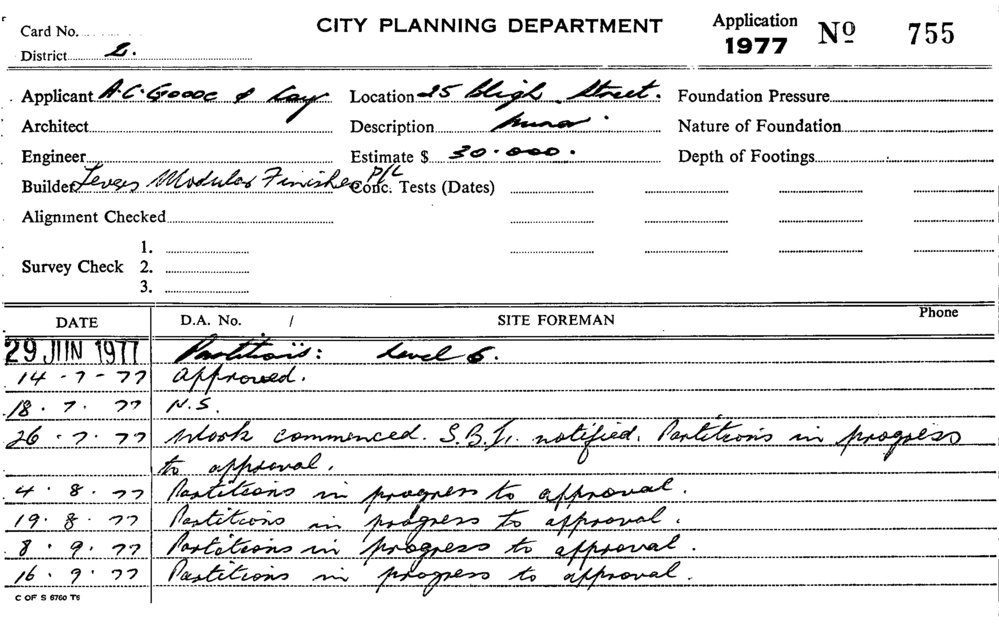 CITY PLANNING DEPARTMENT
Application
1977 No 755
Card No.
District 2.
Applicant A.C. Goode & Coy Location 25 Bligh Street. Foundation Pressure
Architect Description Minor. Nature of Foundation
Engineer Estimate $ 30.000. Depth of Footings
Builder Modular Finishes P/L Conc. Tests (Dates)
Alignment Checked
Survey Check 1.
2.
3.
DATE D.A. No. / SITE FOREMAN Phone
29 JUN 1977 Partitions: Level 6.
14-7-77 Approved.
18.7.77 N.S.
26.7.77 Work commenced. S.B.I. notified. Partitions in progress
to approval.
4.8.77 Partitions in progress to approval.
19.8.77 Partitions in progress to approval.
8.9.77 Partitions in progress to approval.
16.9.77 Partitions in progress to approval.
C OF S 6760 TS